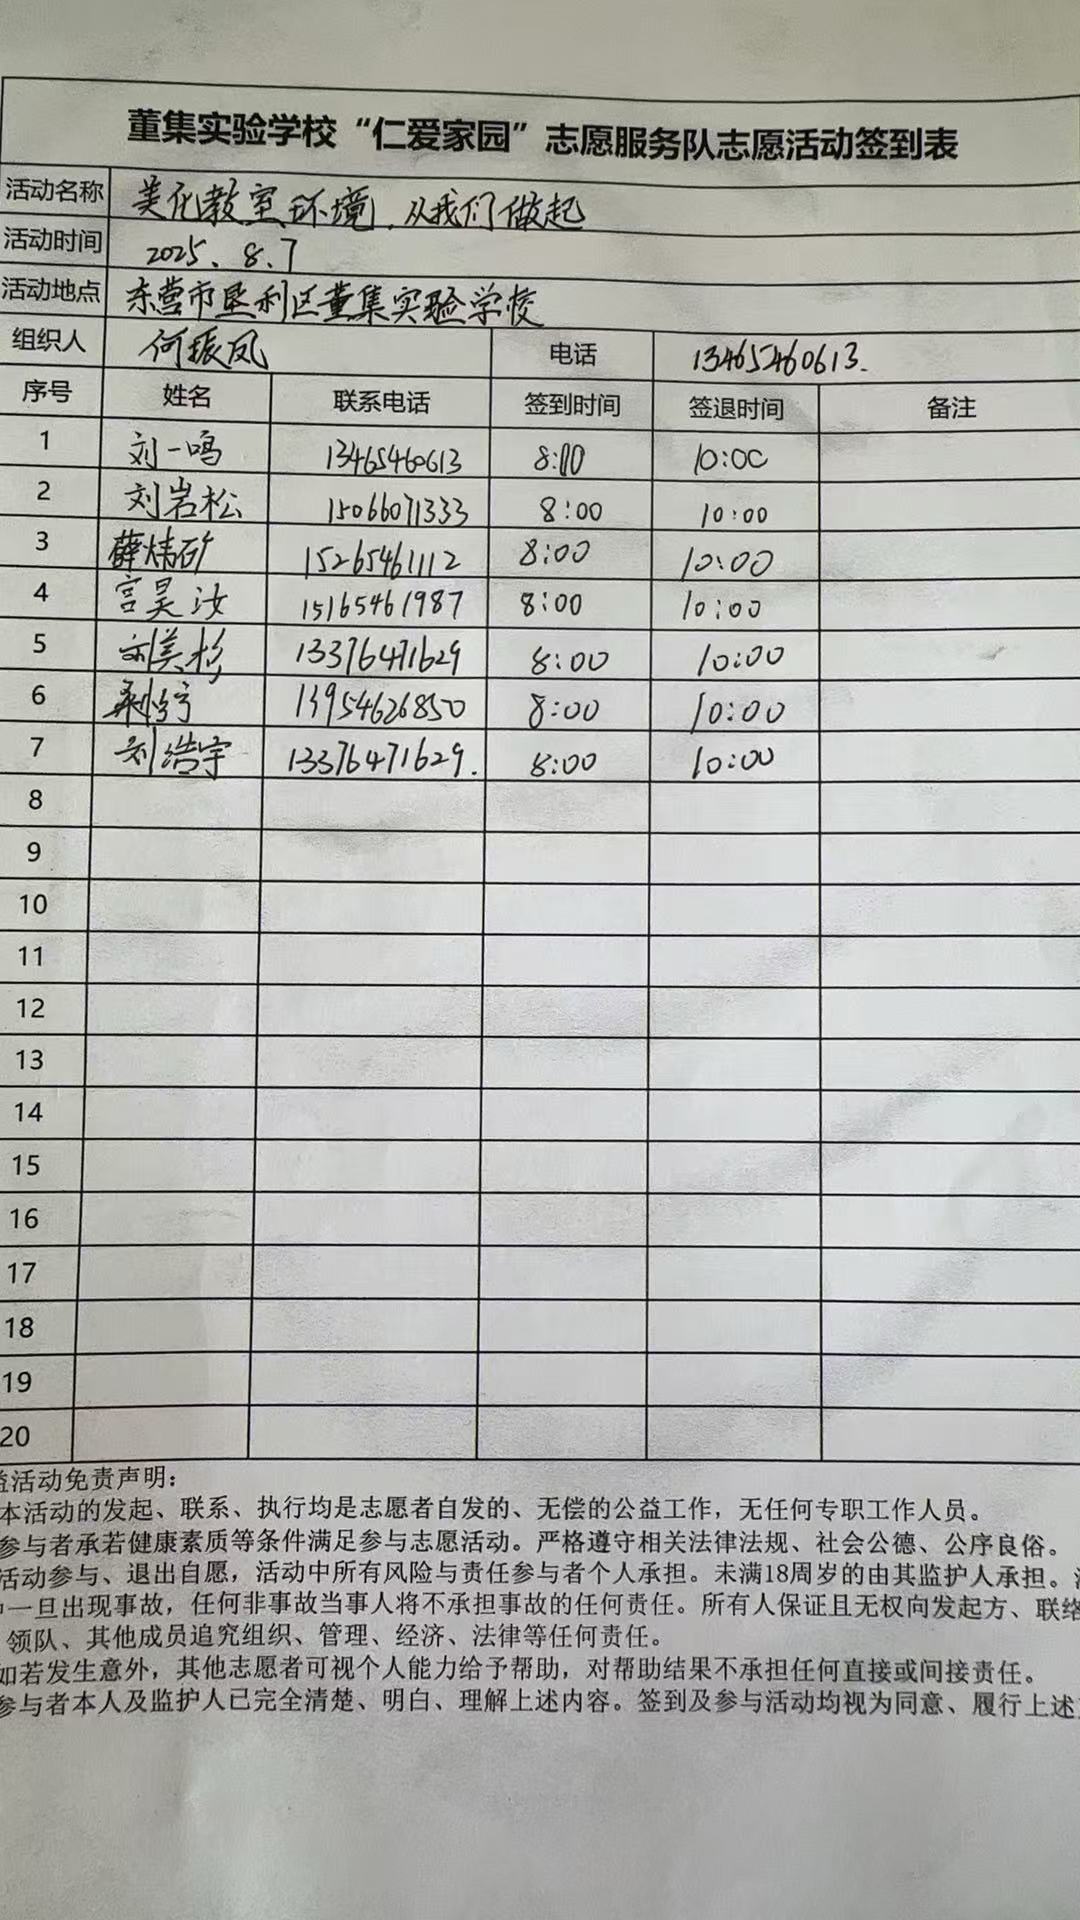 董集实验学校“仁爱家园”志愿服务队志愿活动签到表
活动名称 美化教室环境，从我们做起
活动时间 2025、8、7
活动地点 东营市垦利区董集实验学校
组织人 何振凤 电话 13465460613.
序号 姓名 联系电话 签到时间 签退时间 备注
1 刘一鸣 13465460613 8:00 10:00
2 刘岩松 15066071333 8:00 10:00
3 薛炜矿 15265461112 8:00 10:00
4 宫昊汝 15165461987 8:00 10:00
5 刘美杉 13376471629 8:00 10:00
6 13954626850 8:00 10:00
7 刘浩宇 13376471629. 8:00 10:00
8
9
10
11
12
13
14
15
16
17
18
19
20
益活动免责声明：
本活动的发起、联系、执行均是志愿者自发的、无偿的公益工作，无任何专职工作人员。
参与者承若健康素质等条件满足参与志愿活动。严格遵守相关法律法规、社会公德、公序良俗。
活动参与、退出自愿，活动中所有风险与责任参与者个人承担。未满18周岁的由其监护人承担。
一旦出现事故，任何非事故当事人将不承担事故的任何责任。所有人保证且无权向发起方、联络
领队、其他成员追究组织、管理、经济、法律等任何责任。
如若发生意外，其他志愿者可视个人能力给予帮助，对帮助结果不承担任何直接或间接责任。
参与者本人及监护人已完全清楚、明白、理解上述内容。签到及参与活动均视为同意、履行上述